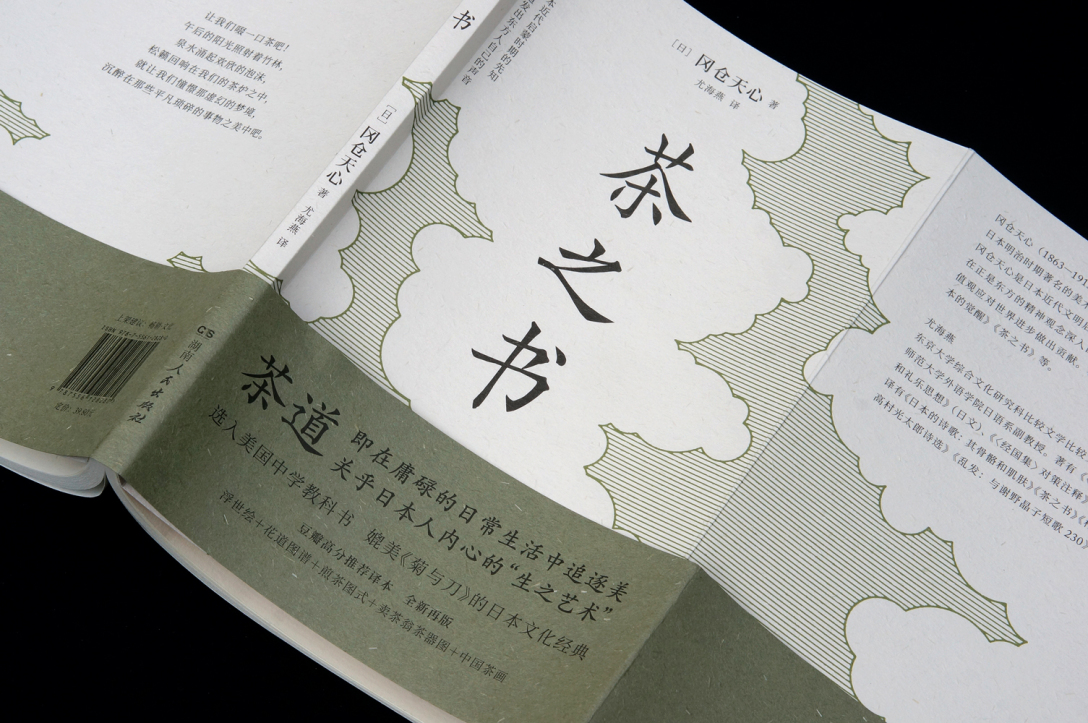 让我们啜一口茶吧！
午后的阳光照射着竹林，
泉水涌起欢欣的泡沫，
松籁回响在我们的茶炉之中，
就让我们憧憬那虚幻的梦境，
沉醉在那些平凡琐碎的事物之美中吧。
书
[日] 冈仓天心 著 尤海燕 译
CS 湖南人民出版社
近代启蒙时期的先知
发出东方人自己的声音
[日] 冈仓天心 著
尤海燕 译
茶之书
茶道 即在庸碌的日常生活中追逐美
关乎日本人内心的“生之艺术”
选入美国中学教科书 媲美《菊与刀》的日本文化经典
豆瓣高分推荐译本 全新再版
浮世绘+花道图谱+煎茶图式+卖茶翁茶器图+中国茶画
冈仓天心（1863—19
日本明治时期著名的美
冈仓天心是日本近代文明
在正是东方的精神观念深入
值观应对世界进步做出贡献。
本的觉醒》《茶之书》等。
尤海燕
东京大学综合文化研究科比较文学比较
师范大学外语学院日语系副教授。著有《
和礼乐思想》（日文）、《〈经国集〉对策注释》
译有《日本的诗歌：其骨骼和肌肤》《茶之书》《
高村光太郎诗选》《乱发：与谢野晶子短歌230